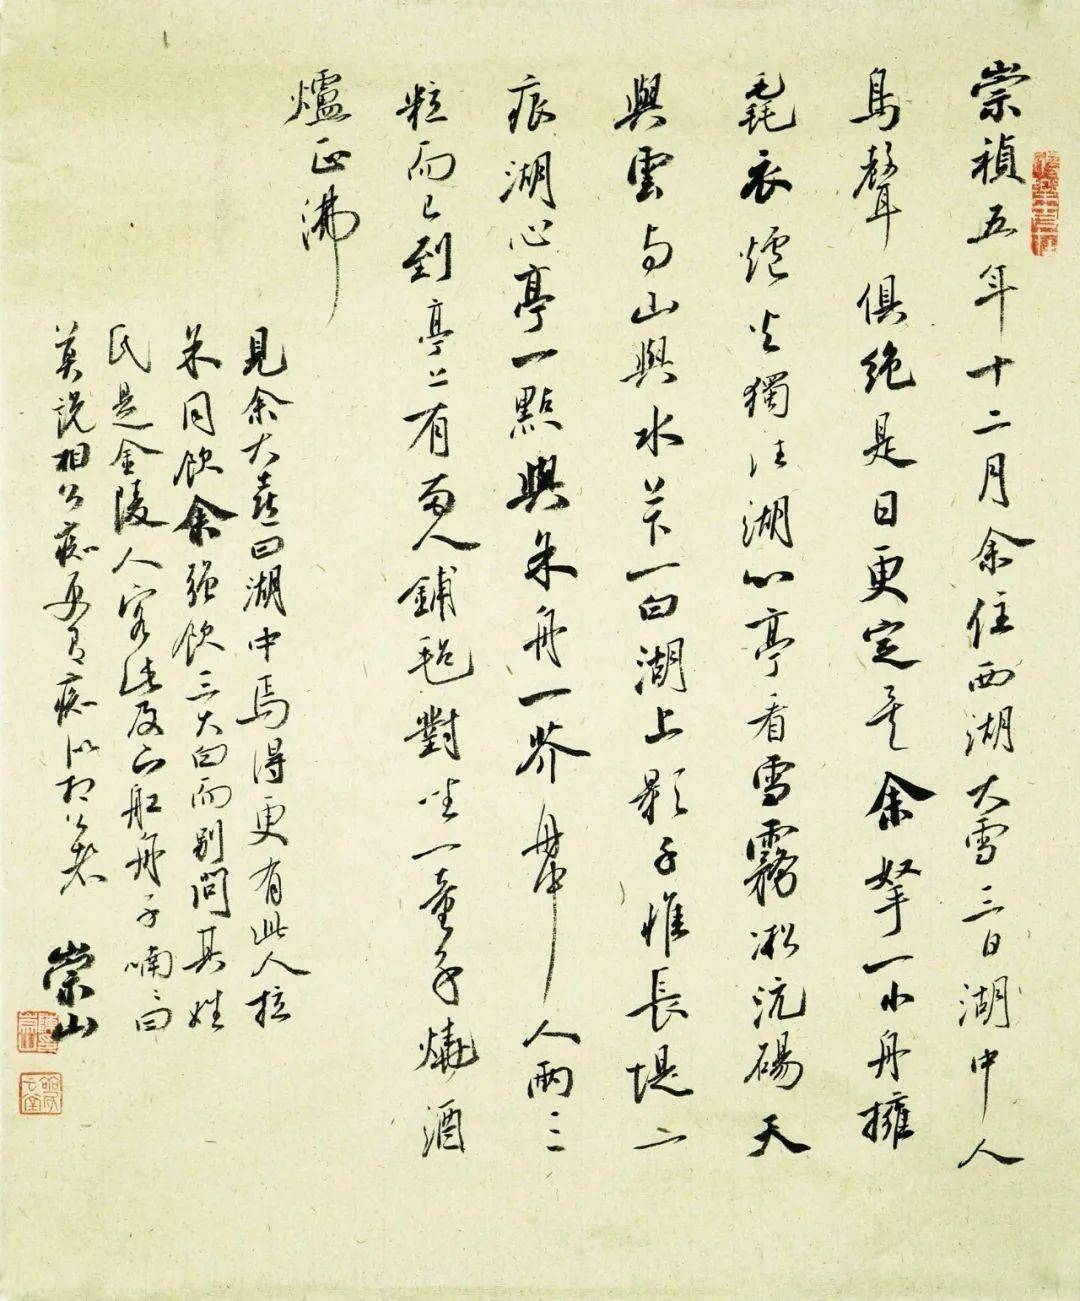 崇禎五年十二月余住西湖大雪三日湖中人
鳥聲俱絶是日更定矣余拏一小舟擁
毳衣爐火獨往湖心亭看雪霧凇沆碭天
與雲与山與水上下一白湖上影子惟長堤一
痕湖心亭一點與余舟一芥舟中人兩三
粒而已到亭上有两人鋪氈對坐一童子燒酒
爐正沸
見余大喜曰湖中焉得更有此人拉
余同飲余強飲三大白而別問其姓
氏是金陵人客此及下船舟子喃喃曰
莫説相公痴更有痴似相公者
崇山